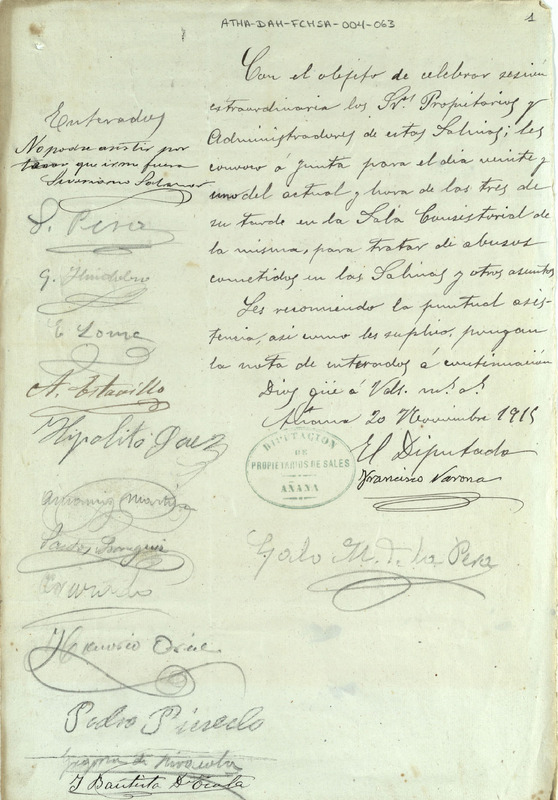 ATHA-DAH-FCMSA-004-063
1
Con el objeto de celebrar sesión
estraordinaria los Sres Propietarios y
Administradores de estas Salinas; les
convoco á junta para el dia veinte y
uno del actual y hora de las tres de
su tarde en la Sala Consistorial de
la misma, para tratar de abusos
cometidos en las Salinas y otros asuntos
Les recomiendo la puntual asis-
tencia, asi como les suplico, pongan
la nota de enterados á continuación
Dios gûe á Vds. ms. as.
Añana 20 Noviembre 1915
El Diputado
Francisco Varona
DIPUTACION
DE
PROPIETARIOS DE SALES
AÑANA
Galo M. de la Pera
Enterados
No podre asistir por
tener que irme fuera
Severiano
D. Pera
G.
E Loma
A. Estavillo
Hipolito Saez
Antonio Martin
Pedro
J Bautista